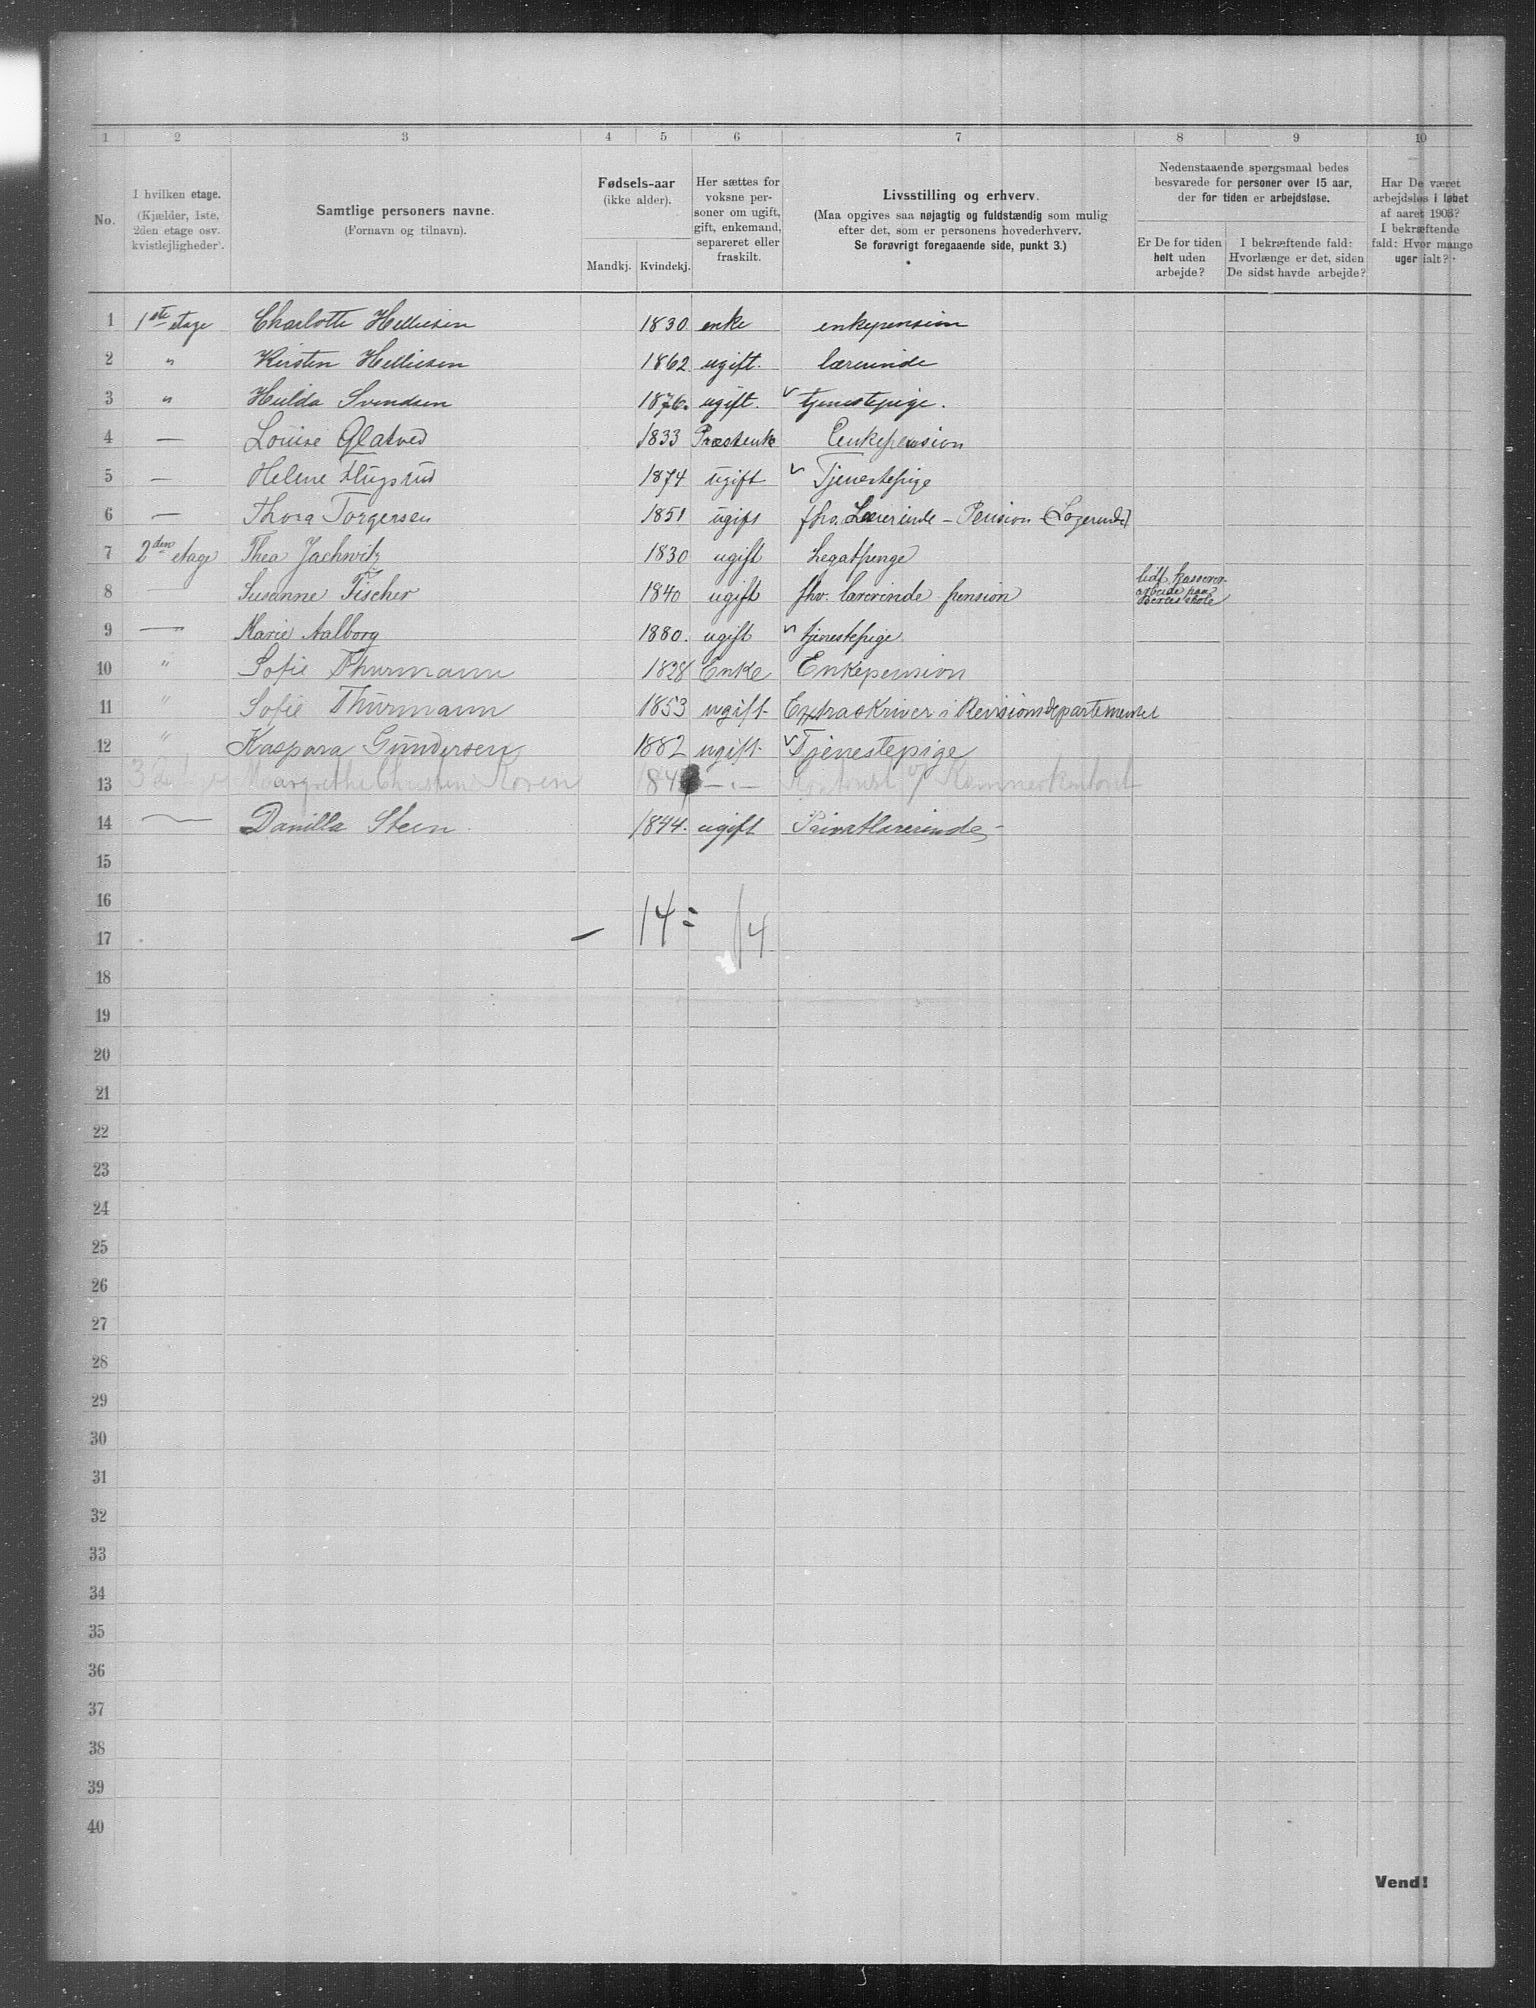 1 2 3 4 5 6 7 8 9 10
No.
I hvilken etage.
(Kjælder, 1ste,
2den etage osv.
kvistlejligheder).
Samtlige personers navne.
(Fornavn og tilnavn).
Fødsels-aar
(ikke alder).
Mandkj. Kvindekj.
Her sættes for
voksne per-
soner om ugift,
gift, enkemand,
separeret eller
fraskilt.
Livsstilling og erhverv.
(Maa opgives saa nøjagtig og fuldstændig som mulig
efter det, som er personens hovederhverv.
Se forøvrigt foregaaende side, punkt 3.)
Nedenstaaende spørgsmaal bedes
besvarede for personer over 15 aar,
der for tiden er arbejdsløse.
Er De for tiden
helt uden
arbejde?
I bekræftende fald:
Hvorlænge er det, siden
De sidst havde arbejde?
Har De været
arbejdsløs i løbet
af aaret 1903?
I bekræftende
fald: Hvor mange
uger ialt?
1 1ste etage Charlotte Helliesen 1830 enke enkepension
2 " Kirsten Helliesen 1862 ugift. lærerinde
3 " Hulda Svendsen 1876. ugift. v tjenestepige.
4 — Louise Glatved 1833 Præstenke Enkepension
5 — Helene 1874 ugift v Tjenestepige
6 — Thora Torgersen 1851 ugift fhv. Lærerinde – Pension (Logerende)
7 2den etage Thea Jachwitz 1830 ugift Legatpenge
8 — Susanne Fischer 1840 ugift fhv. lærerinde pension arbeide paa Berles skole
9 — Marie Aalborg 1880. ugift v tjenestepige.
10 " Sofie Thurmann 1828 Enke Enkepension
11 " Sofie Thurmann 1853 ugift Extraskriver i Revisionsdepartementet
12 " Kaspara Gundersen 1882 ugift v Tjenestepige
13 Margrethe Christine Koren — " —
14 — Danilla Steen. 1844. ugift Privatlærerinde
15
16
17 — 14 = 14
18
19
20
21
22
23
24
25
26
27
28
29
30
31
32
33
34
35
36
37
38
39
40
Vend!